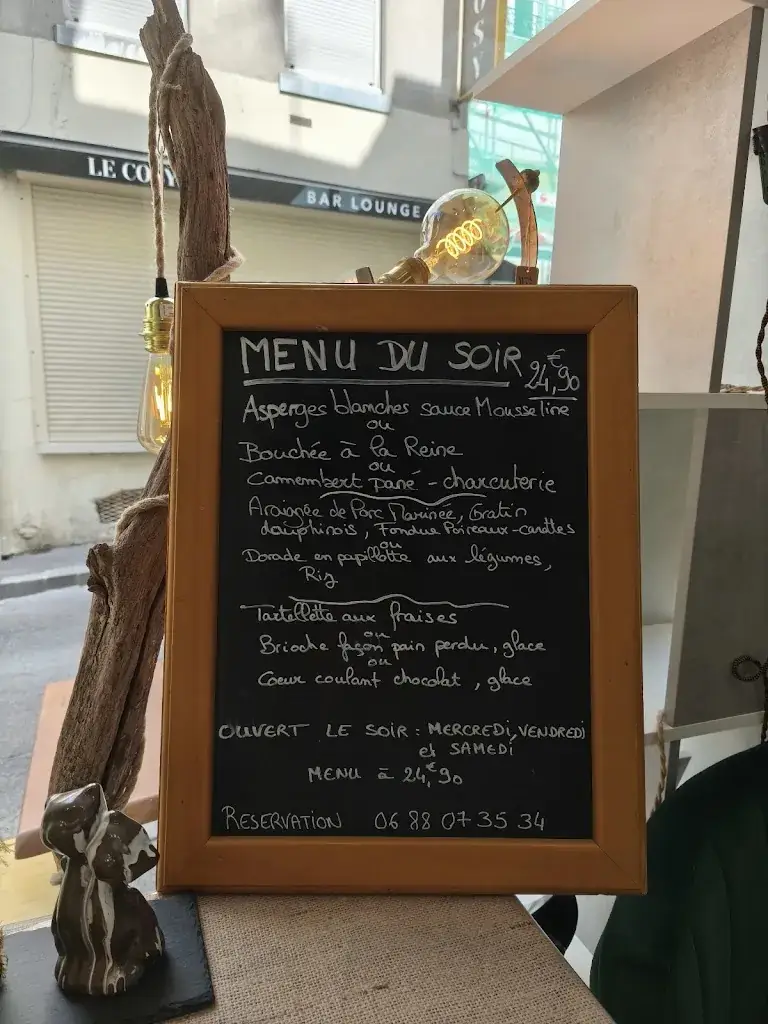 OSY
LE COSY
BAR LOUNGE
MENU DU SOIR 24,€90
Asperges blanches sauce Mousseline
ou
Bouchée à la Reine
ou
Camembert pané - charcuterie
Araignée de Porc Marinée, Gratin
dauphinois, Fondue Poireaux-carottes
ou
Dorade en papillotte aux légumes,
Riz
Tartellette aux fraises
ou
Brioche façon pain perdu, glace
ou
Coeur coulant chocolat, glace
OUVERT LE SOIR : MERCREDI, VENDREDI
et SAMEDI
MENU à 24,€90
RESERVATION 06 88 07 35 34